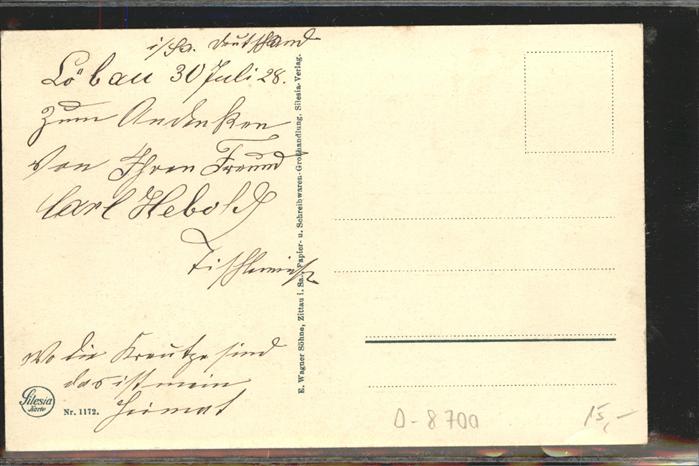 i/Sa. Deutschland
Löbau 30 Juli 28.
Zum Andenken
Von Ihren Freund
Carl Hebold
Tischlermeistr
Wo die Kreutze sind
das ist mein
Heimat
Silesia
Karte
Nr. 1172.
E. Wagner Söhne, Zittau i. Sa., Papier- u. Schreibwaren-Großhandlung. Silesia-Verlag.
D-8700
15,-